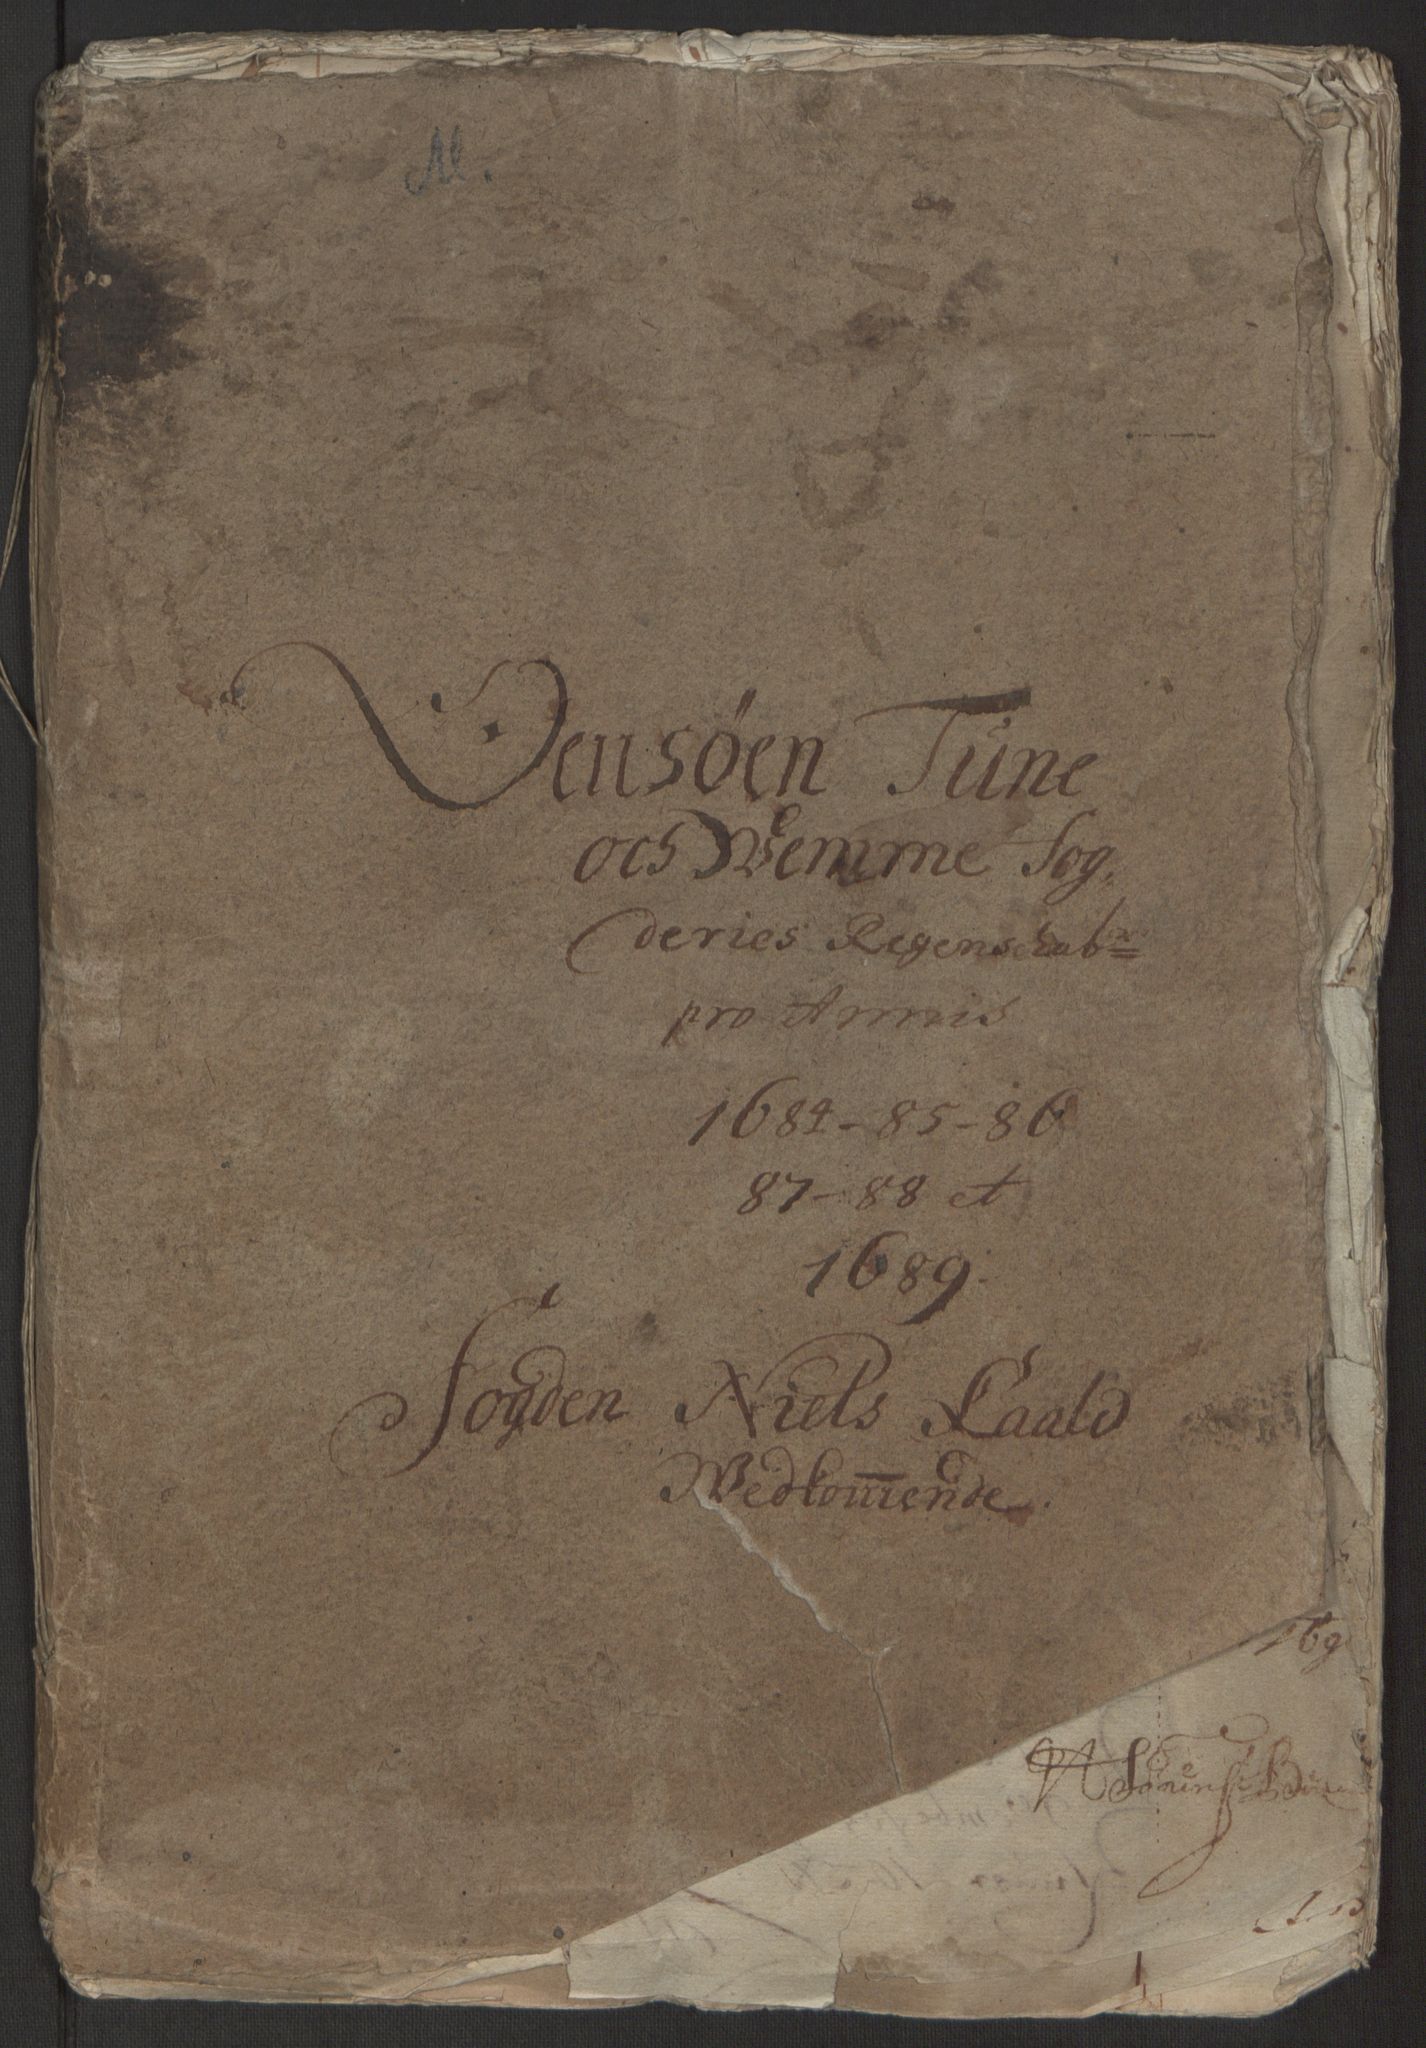 M.
Vensøen Tune
och Wemme fog,
deries Regenschabr
pro Annis
1684-85-86
87-88 et
1689.
fogden Niels Kaald
Wedkom̅ende.
169